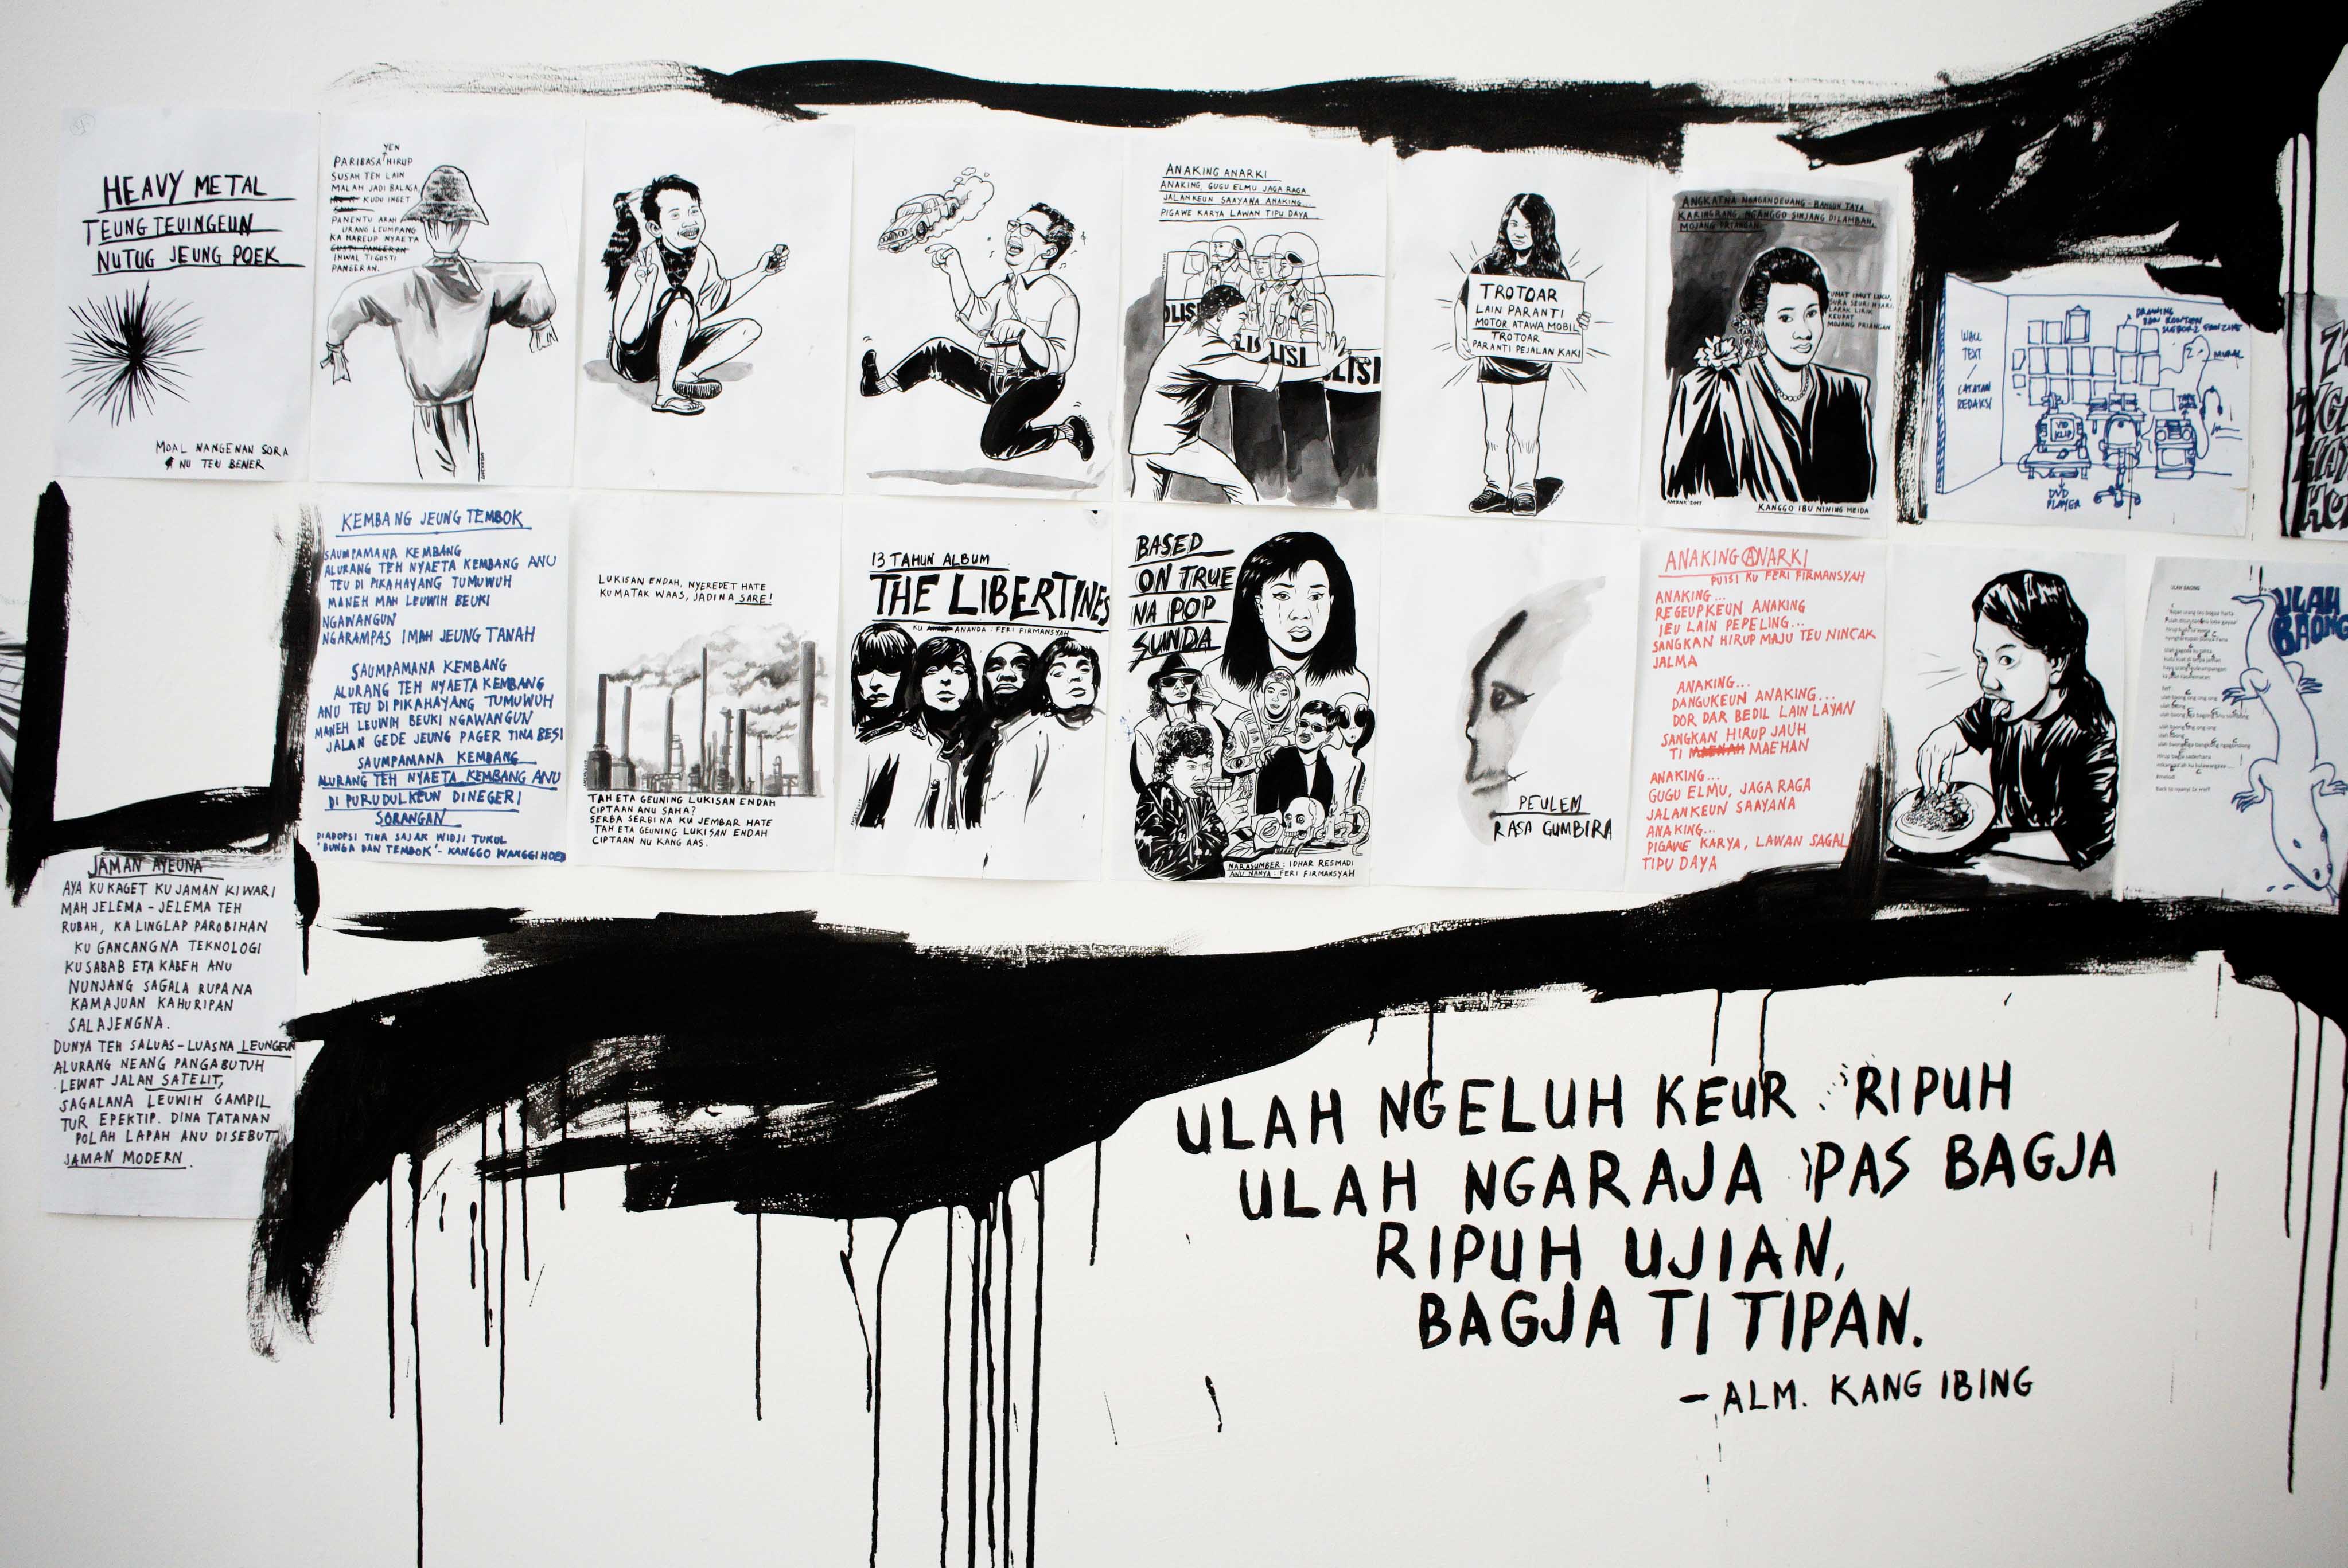 HEAVY METAL
TEUNG TEUINGEUN
NUTUG JEUNG POEK
MOAL NANGENAN SORA
NU TEU BENER
YEN
PARIBASA HIRUP
SUSAH TEH LAIN
MALAH JADI BALAGA
KUDU INGET
PANENTU AKAN
URANG LEUMPANG
KA HAREUP NYAETA
GUSTI PANGERAN
IHWAL TI GUSTI
PANGERAN.
ANAKING ANARKI
ANAKING, GUGU ELMU JAGA RAGA
JALANKEUN SAAYANA ANAKING...
PIGAWE KARYA LAWAN TIPU DAYA
OLISI
LISI
LISI
LISI
TROTOAR
LAIN PARANTI
MOTOR ATAWA MOBIL
TROTOAR
PARANTI PEJALAN KAKI
ANGKATNA NGAGANDEUANG - BANGUN TAYA
KARINGRANG, NGANGGO SINJANG DILAMBAN,
MOJANG PRIANGAN.
IMUT LUCU,
LARAK LIRIK
KEUPAT
MOJANG PRIANGAN
KANGGO IBU NINING MEIDA
WALL
TEXT
/
CATATAN
REDAKSI
DRAWING
DAN KONTEN
MURAL
VID
KLIP
DVD
PLAYER
KEMBANG JEUNG TEMBOK
SAUMPAMANA KEMBANG
ALURANG TEH NYAETA KEMBANG ANU
TEU DI PIKAHAYANG TUMUWUH
MANEH MAH LEUWIH BEUKI
NGAWANGUN
NGARAMPAS IMAH JEUNG TANAH
SAUMPAMANA KEMBANG
ALURANG TEH NYAETA KEMBANG
ANU TEU DI PIKAHAYANG TUMUWUH
MANEH LEUWIH BEUKI NGAWANGUN
JALAN GEDE JEUNG PAGER TINA BESI
SAUMPAMANA KEMBANG
ALURANG TEH NYAETA KEMBANG ANU
DI PURUDULKEUN DINEGERI
SORANGAN
DIADOPSI TINA SAJAK WIDJI TUKUL
"BUNGA DAN TEMBOK" - KANGGO WANGGI HOED
LUKISAN ENDAH, NYEREDET HATE
KU MATAK WAAS, JADI NA SARE!
TAH ETA GEUNING LUKISAN ENDAH
CIPTAAN ANU SAHA?
SERBA SERBI NA KU JEMBAR HATE
TAH ETA GEUNING LUKISAN ENDAH
CIPTAAN NU KANG AAS.
13 TAHUN ALBUM
THE LIBERTINES
KU ANANDA : FERI FIRMANSYAH
BASED
ON TRUE
NA POP
SUNDA
NARASUMBER : IDHAR RESMADI
ANU NANYA : FERI FIRMANSYAH
PEULEM
RASA GUMBIRA
ANAKING ANARKI
PUISI KU FERI FIRMANSYAH
ANAKING...
REGEUPKEUN ANAKING
IEU LAIN PEPELING...
SANGKAN HIRUP MAJU TEU NINCAK
JALMA
ANAKING...
DANGUKEUN ANAKING...
DOR DAR BEDIL LAIN LAYAN
SANGKAN HIRUP JAUH
TI MAEHAN
ANAKING...
GUGU ELMU, JAGA RAGA
JALANKEUN SAAYANA
ANAKING...
PIGAWE KARYA, LAWAN SAGAL
TIPU DAYA
ULAH BAONG
ULAH
BAONG
JAMAN AYEUNA
AYA KU KAGET KU JAMAN KIWARI
MAH JELEMA - JELEMA TEH
RUBAH, KA LINGLAP PAROBIHAN
KU GANCANGNA TEKNOLOGI
KU SABAB ETA KABEH ANU
NUNJANG SAGALA RUPA NA
KAMAJUAN KAHURIPAN
SALAJENGNA.
DUNYA TEH SALUAS-LUASNA LEUNGEUN
ALURANG NEANG PANGABUTUH
LEWAT JALAN SATELIT,
SAGALANA LEUWIH GAMPIL
TUR EPEKTIP. DINA TATANAN
POLAH LAPAH ANU DISEBUT
JAMAN MODERN.
ULAH NGELUH KEUR RIPUH
ULAH NGARAJA PAS BAGJA
RIPUH UJIAN,
BAGJA TI TIPAN.
- ALM. KANG IBING